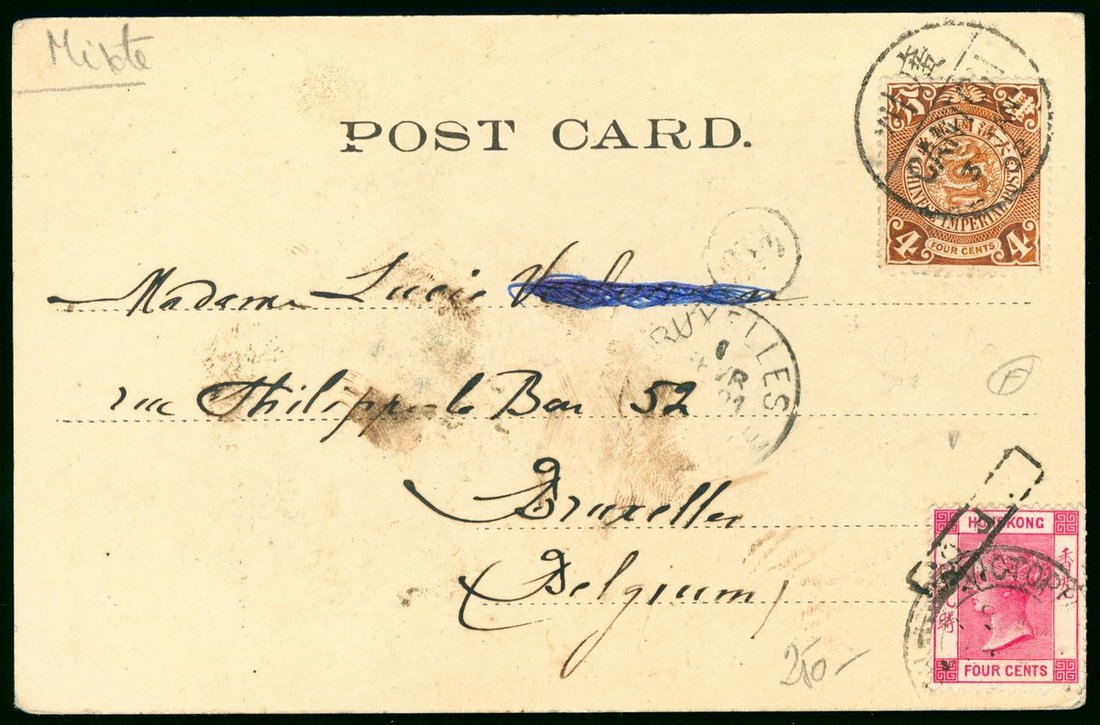 Mixte
POST CARD.
4
CHINESE IMPERIAL POST
4 FOUR CENTS 4
CANTON
Madame Lucie
BRUXELLES
rue Philippe le Bon 52
Bruxelles
Belgium
F
HONG KONG
香
VICTORIA
FOUR CENTS
I.P.O.
250-